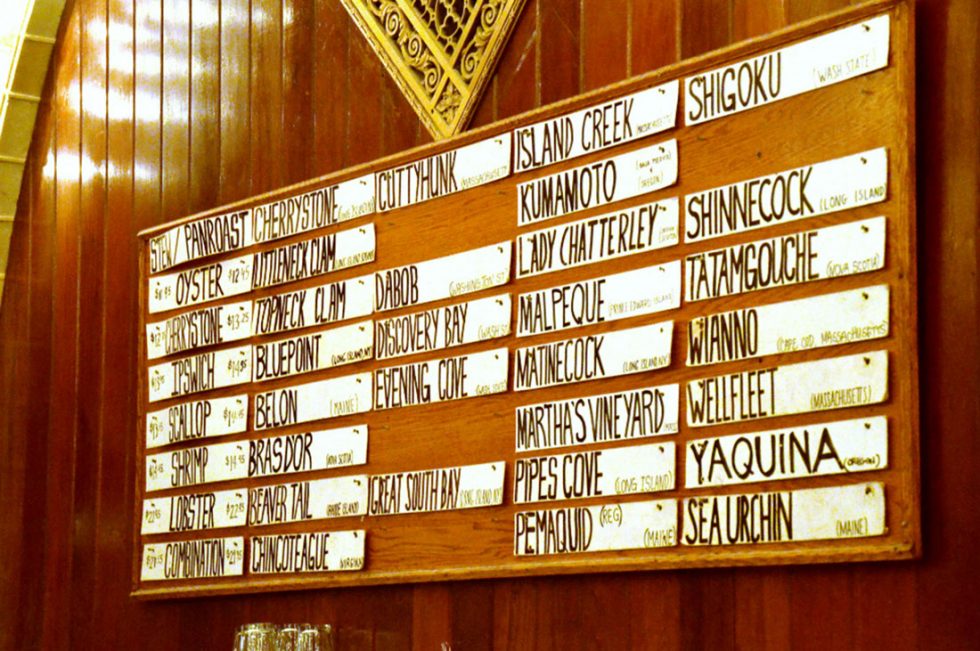 STEW/PANROAST
OYSTER $12.45
CHERRYSTONE $13.25
IPSWICH
SCALLOP
SHRIMP
LOBSTER
COMBINATION
CHERRYSTONE
LITTLENECK CLAM
TOPNECK CLAM
BLUEPOINT (LONG ISLAND, NY)
BELON (MAINE)
BRASDOR (NOVA SCOTIA)
BEAVER TAIL (RHODE ISLAND)
CHINCOTEAGUE (VIRGINIA)
CUTTYHUNK (MASSACHUSETTS
DABOB (WASHINGTON ST
DISCOVERY BAY (WASH ST
EVENING COVE
GREAT SOUTH BAY (LONG ISLAND NY)
ISLAND CREEK MASSACHUSETTS
KUMAMOTO OREGON)
LADY CHATTERLEY
MALPEQUE (PRINCE EDWARD ISLAND)
MATINECOCK (LONG ISLAND, NY)
MARTHA'S VINEYARD MASS
PIPES COVE (LONG ISLAND)
PEMAQUID (REG) (MAINE)
SHIGOKU (WASH STATE)
SHINNECOCK (LONG ISLAND
TATAMGOUCHE (NOVA SCOTIA)
WIANNO (CAPE COD, MASSACHUSETTS)
WELLFLEET (MASSACHUSETTS)
YAQUINA (OREGON)
SEA URCHIN (MAINE)